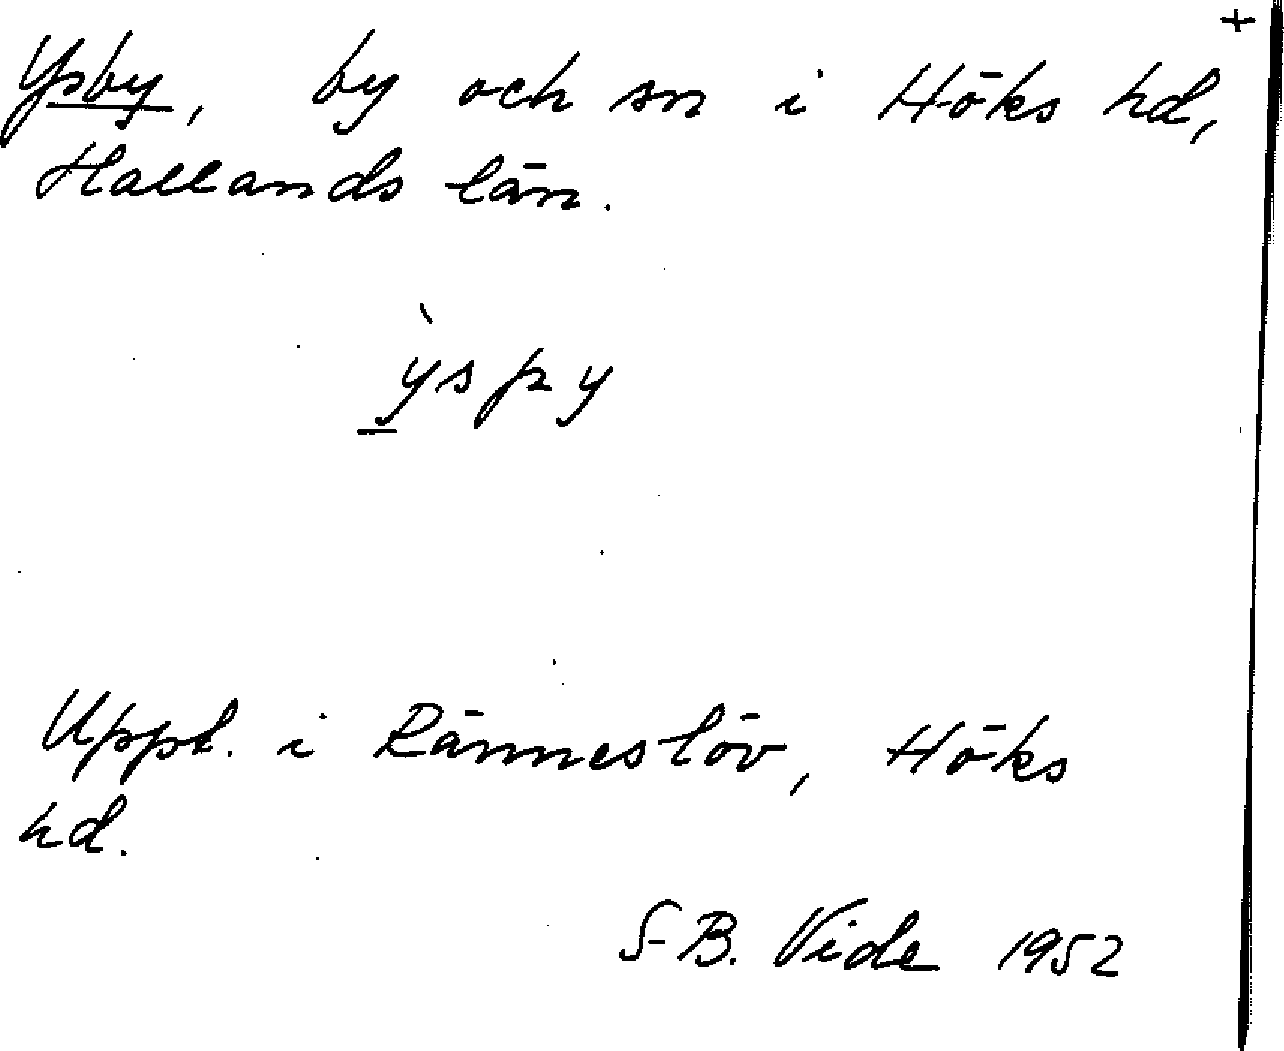 +
Ysby, by och sn i Höks hd,
Hallands län.
̀yspy
Uppt. i Ränneslöv, Höks
hd.
S-B. Vide 1952